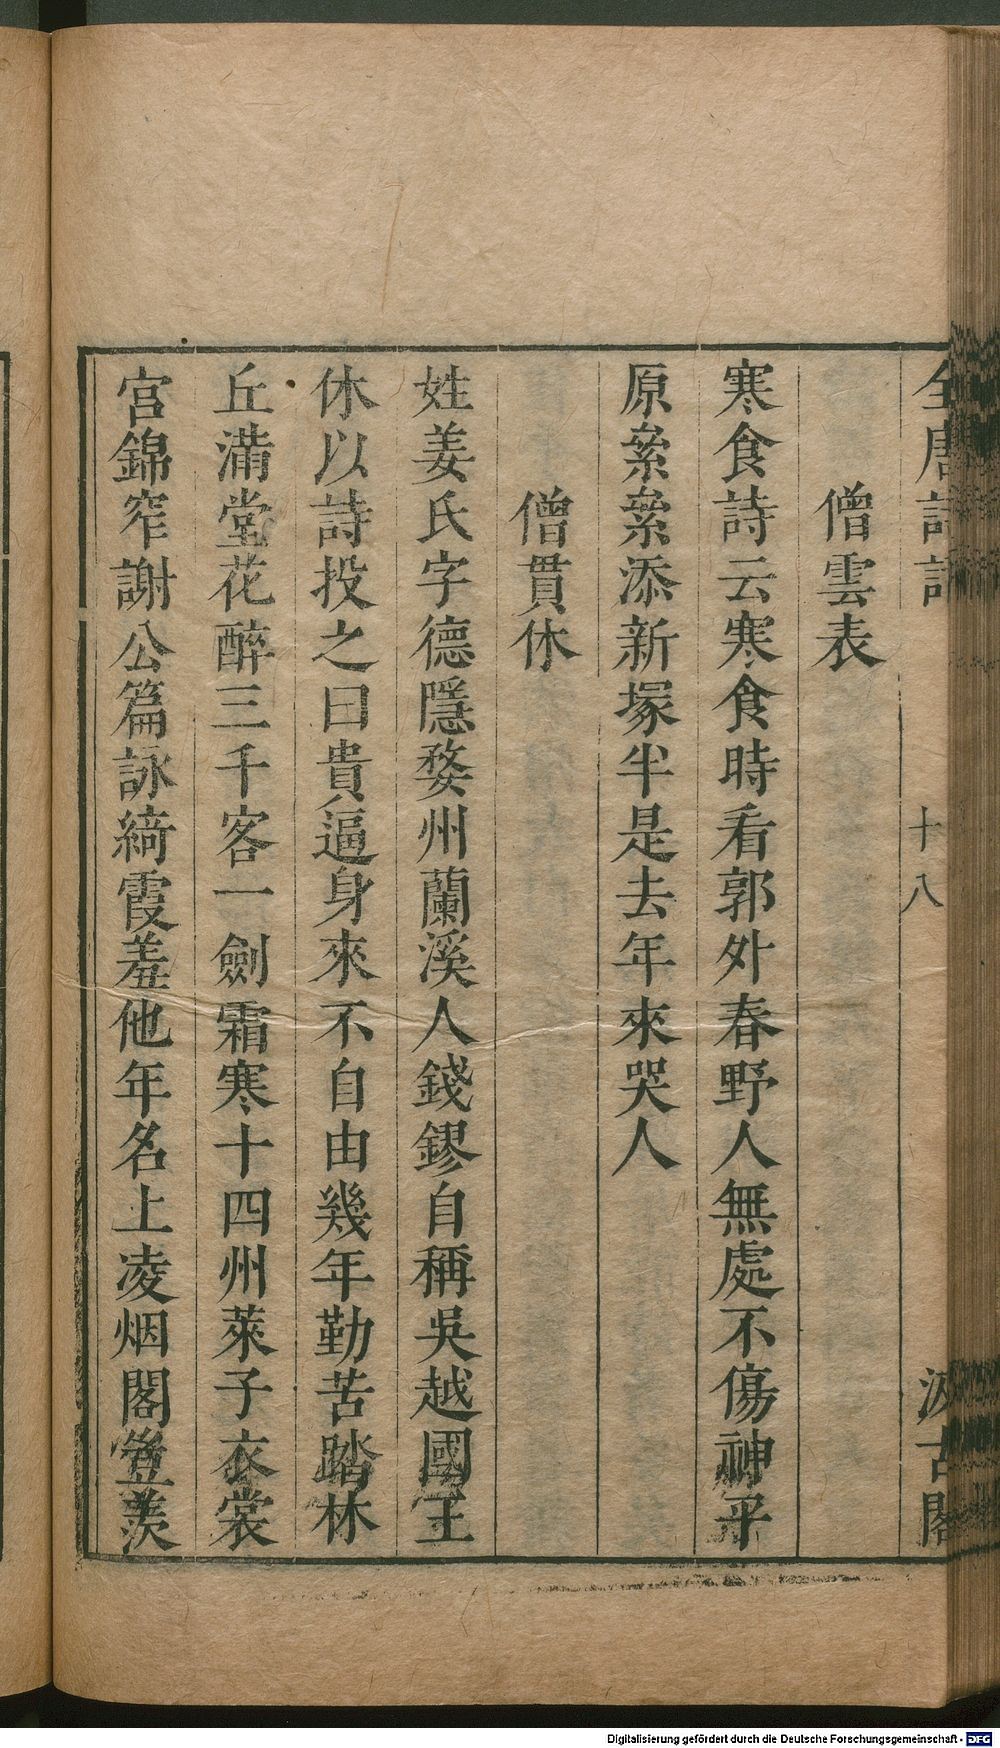 全唐詩話 十八 汲古閣
僧雲表
寒食詩云寒食時看郭外春野人無處不傷神平
原纍纍添新塚半是去年來哭人
僧貫休
姓姜氏字德隱婺州蘭溪人錢鏐自稱吳越國王
休以詩投之曰貴逼身來不自由幾年勤苦踏林
丘滿堂花醉三千客一劍霜寒十四州萊子衣裳
宮錦窄謝公篇詠綺霞羞他年名上凌烟閣豈羨
Digitalisierung gefördert durch die Deutsche Forschungsgemeinschaft - DFG